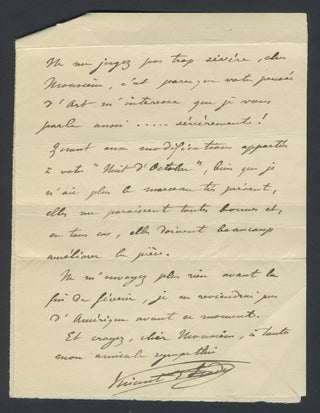 Ne me jugez pas trop sévère, cher
Monsieur, c'est parce que votre pensée
d'Art m'intéresse que je vous
parle aussi ..... sévèrement !
Quant aux modifications apportées
à votre "Nuit d'Octobre", bien que je
n'aie plus le morceau très présent,
elles me paraissent toutes bonnes et,
en tous cas, elles doivent beaucoup
améliorer la pièce.
Ne m'envoyez plus rien avant la
fin de février, je ne reviendrai pas
d'Amérique avant ce moment.
Et croyez, cher Monsieur, à toute
mon amicale sympathie
Vincent d'Indy